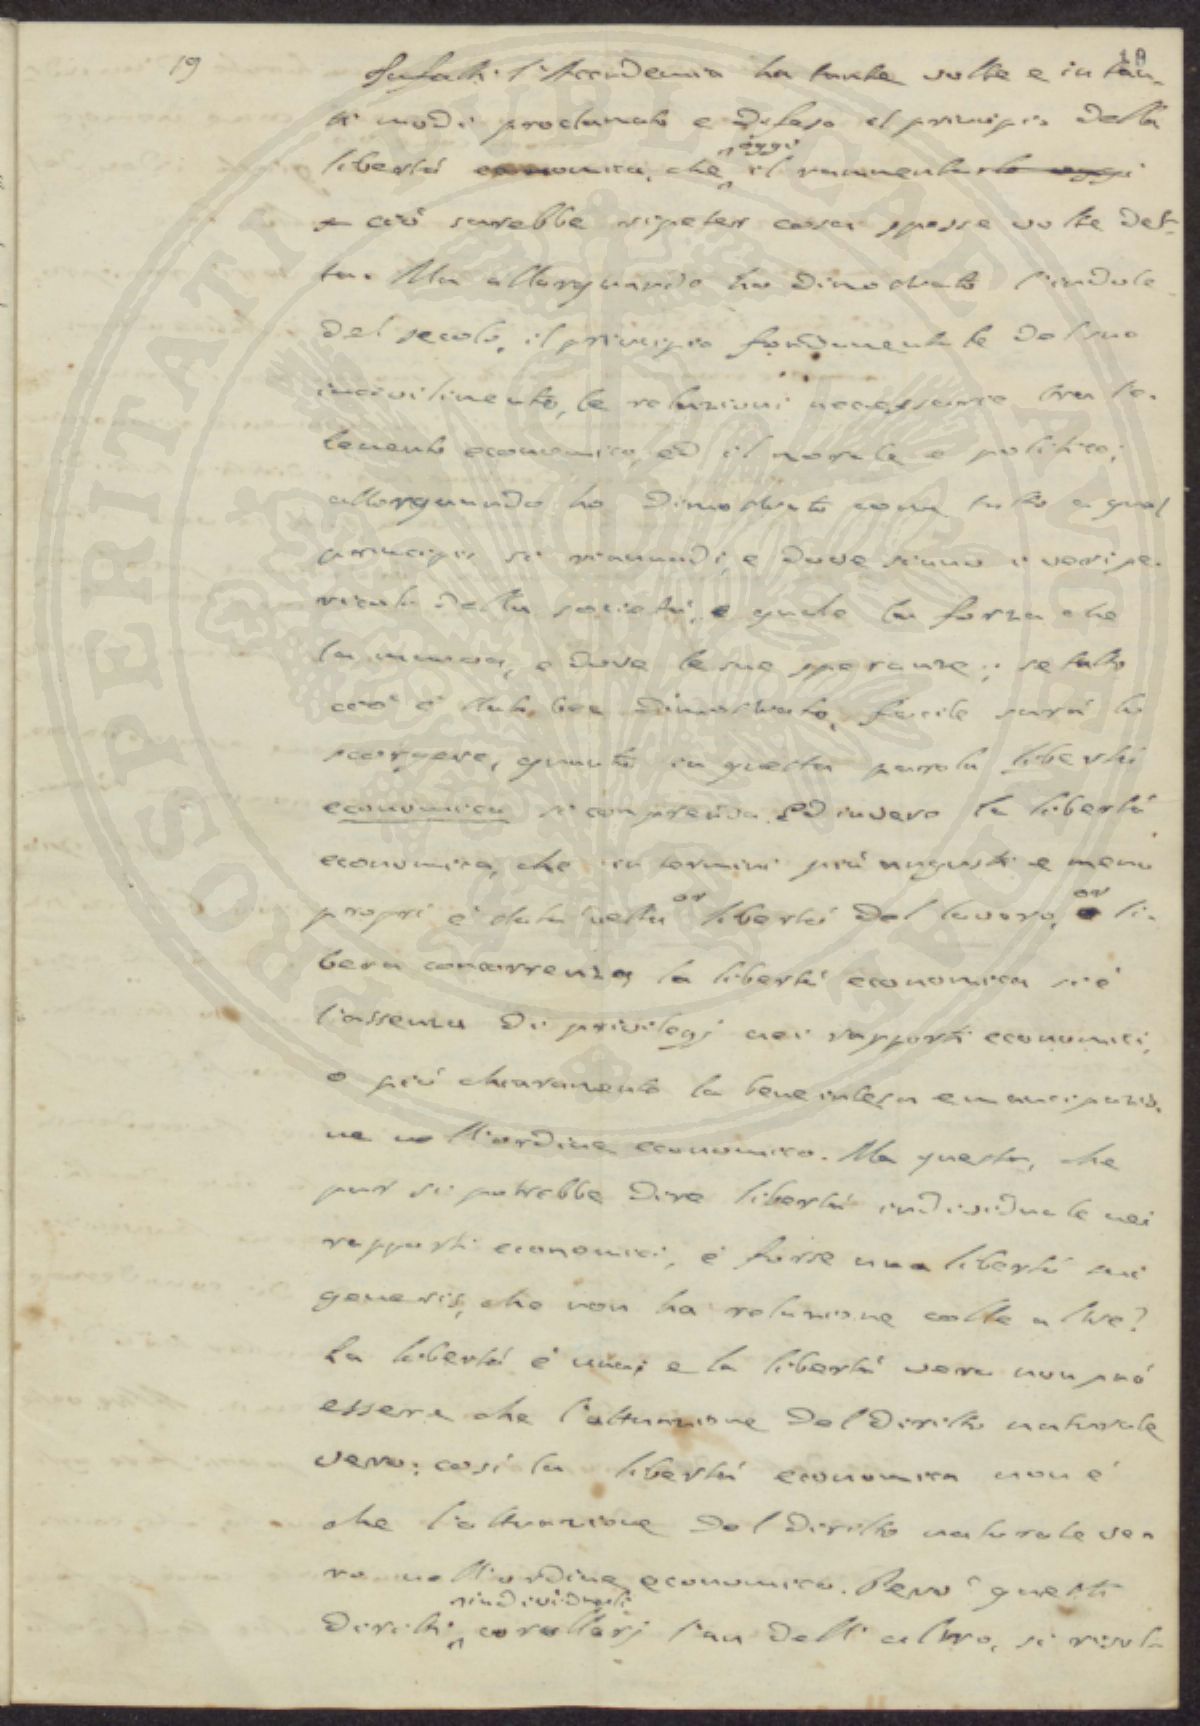 19
19
Infatti l'Accademia ha tante volte e in tan-
ti modi proclamato e difeso il principio della
oggi
libertà economica, che il rammentarlo oggi
e ciò sarebbe ripeter cosa spesse volte det-
ta. Ma allorquando ho dimostrato l'indole
del secolo, il principio fondamentale del suo
incivilimento, le relazioni necessarie tra l'e-
lemento economico, ed il morale e politico;
allorquando ho dimostrato come tutto a qual
principio si rimandi, e dove siano i veri pe-
ricoli della società, e quale la forza che
la muova, e dove le sue speranze; se tutto
ciò è stato ben dimostrato, facile sarà lo
scorgere, quanto in questa parola libertà
economica si comprenda. Ed invero la libertà
economica, che in termini più angusti e meno
or or
propri è stata detta libertà del lavoro, o li-
bera concorrenza, la libertà economica si è
l'assenza di privilegj nei rapporti economici,
o più chiaramente la bene intesa emancipazio-
ne nell'ordine economico. Ma questa, che
pur si potrebbe dire libertà individuale nei
rapporti economici, è forse una libertà sui
generis, che non ha relazione colle altre?
La libertà è una; e la libertà vera non può
essere che l'attuazione del diritto naturale
vero; così la libertà economica non è
che l'attuazione del diritto naturale ve-
ro nell'ordine economico. Però questi
individuali
diritti, corollarj l'un dell'altro, si risol-
PROSPERITATI PUBLICAE AUGENDAE